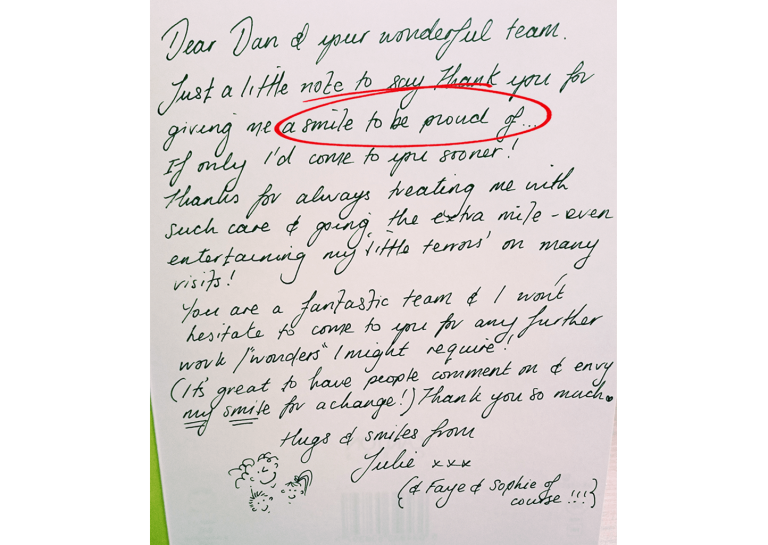 Dear Dan & your wonderful team.
Just a little note to say Thank you for
giving me a smile to be proud of...
If only I'd come to you sooner!
Thanks for always treating me with
such care & going the extra mile - even
entertaining my 'little terrors' on many
visits!
You are a fantastic team & I won't
hesitate to come to you for any further
work / "wonders" I might require!
(It's great to have people comment on & envy
my smile for a change!) Thank you so much.
Hugs & smiles from
Julie xxx
(& Faye & Sophie of
course!!!)